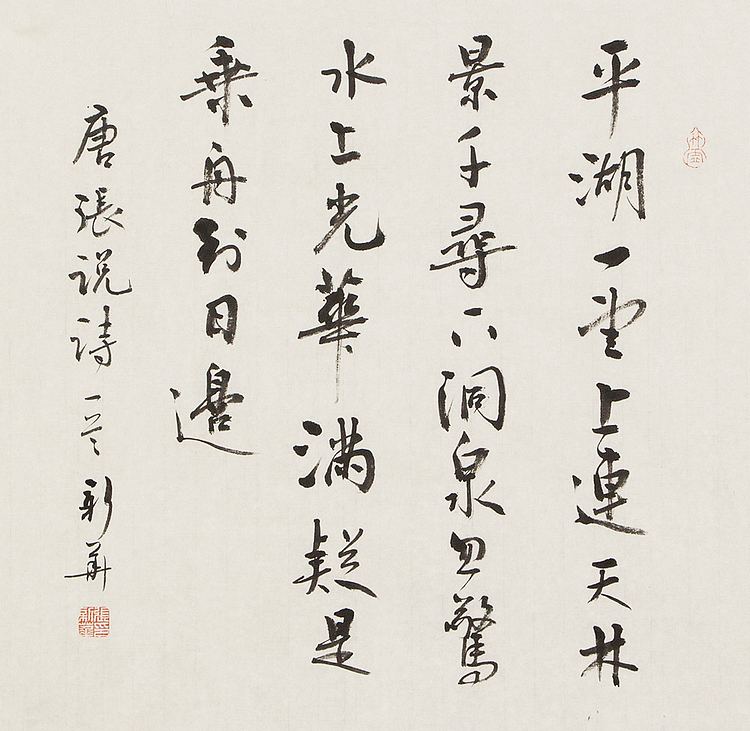 平湖一望上連天林
景千尋下洞泉忽驚
水上光華滿疑是
乘舟到日邊
唐張説詩一首 新華
張新華印